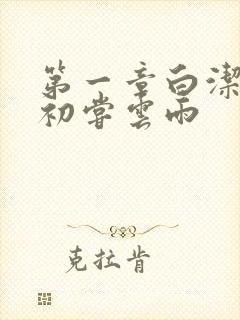 第一章白潔
初嘗雲雨
克拉肯